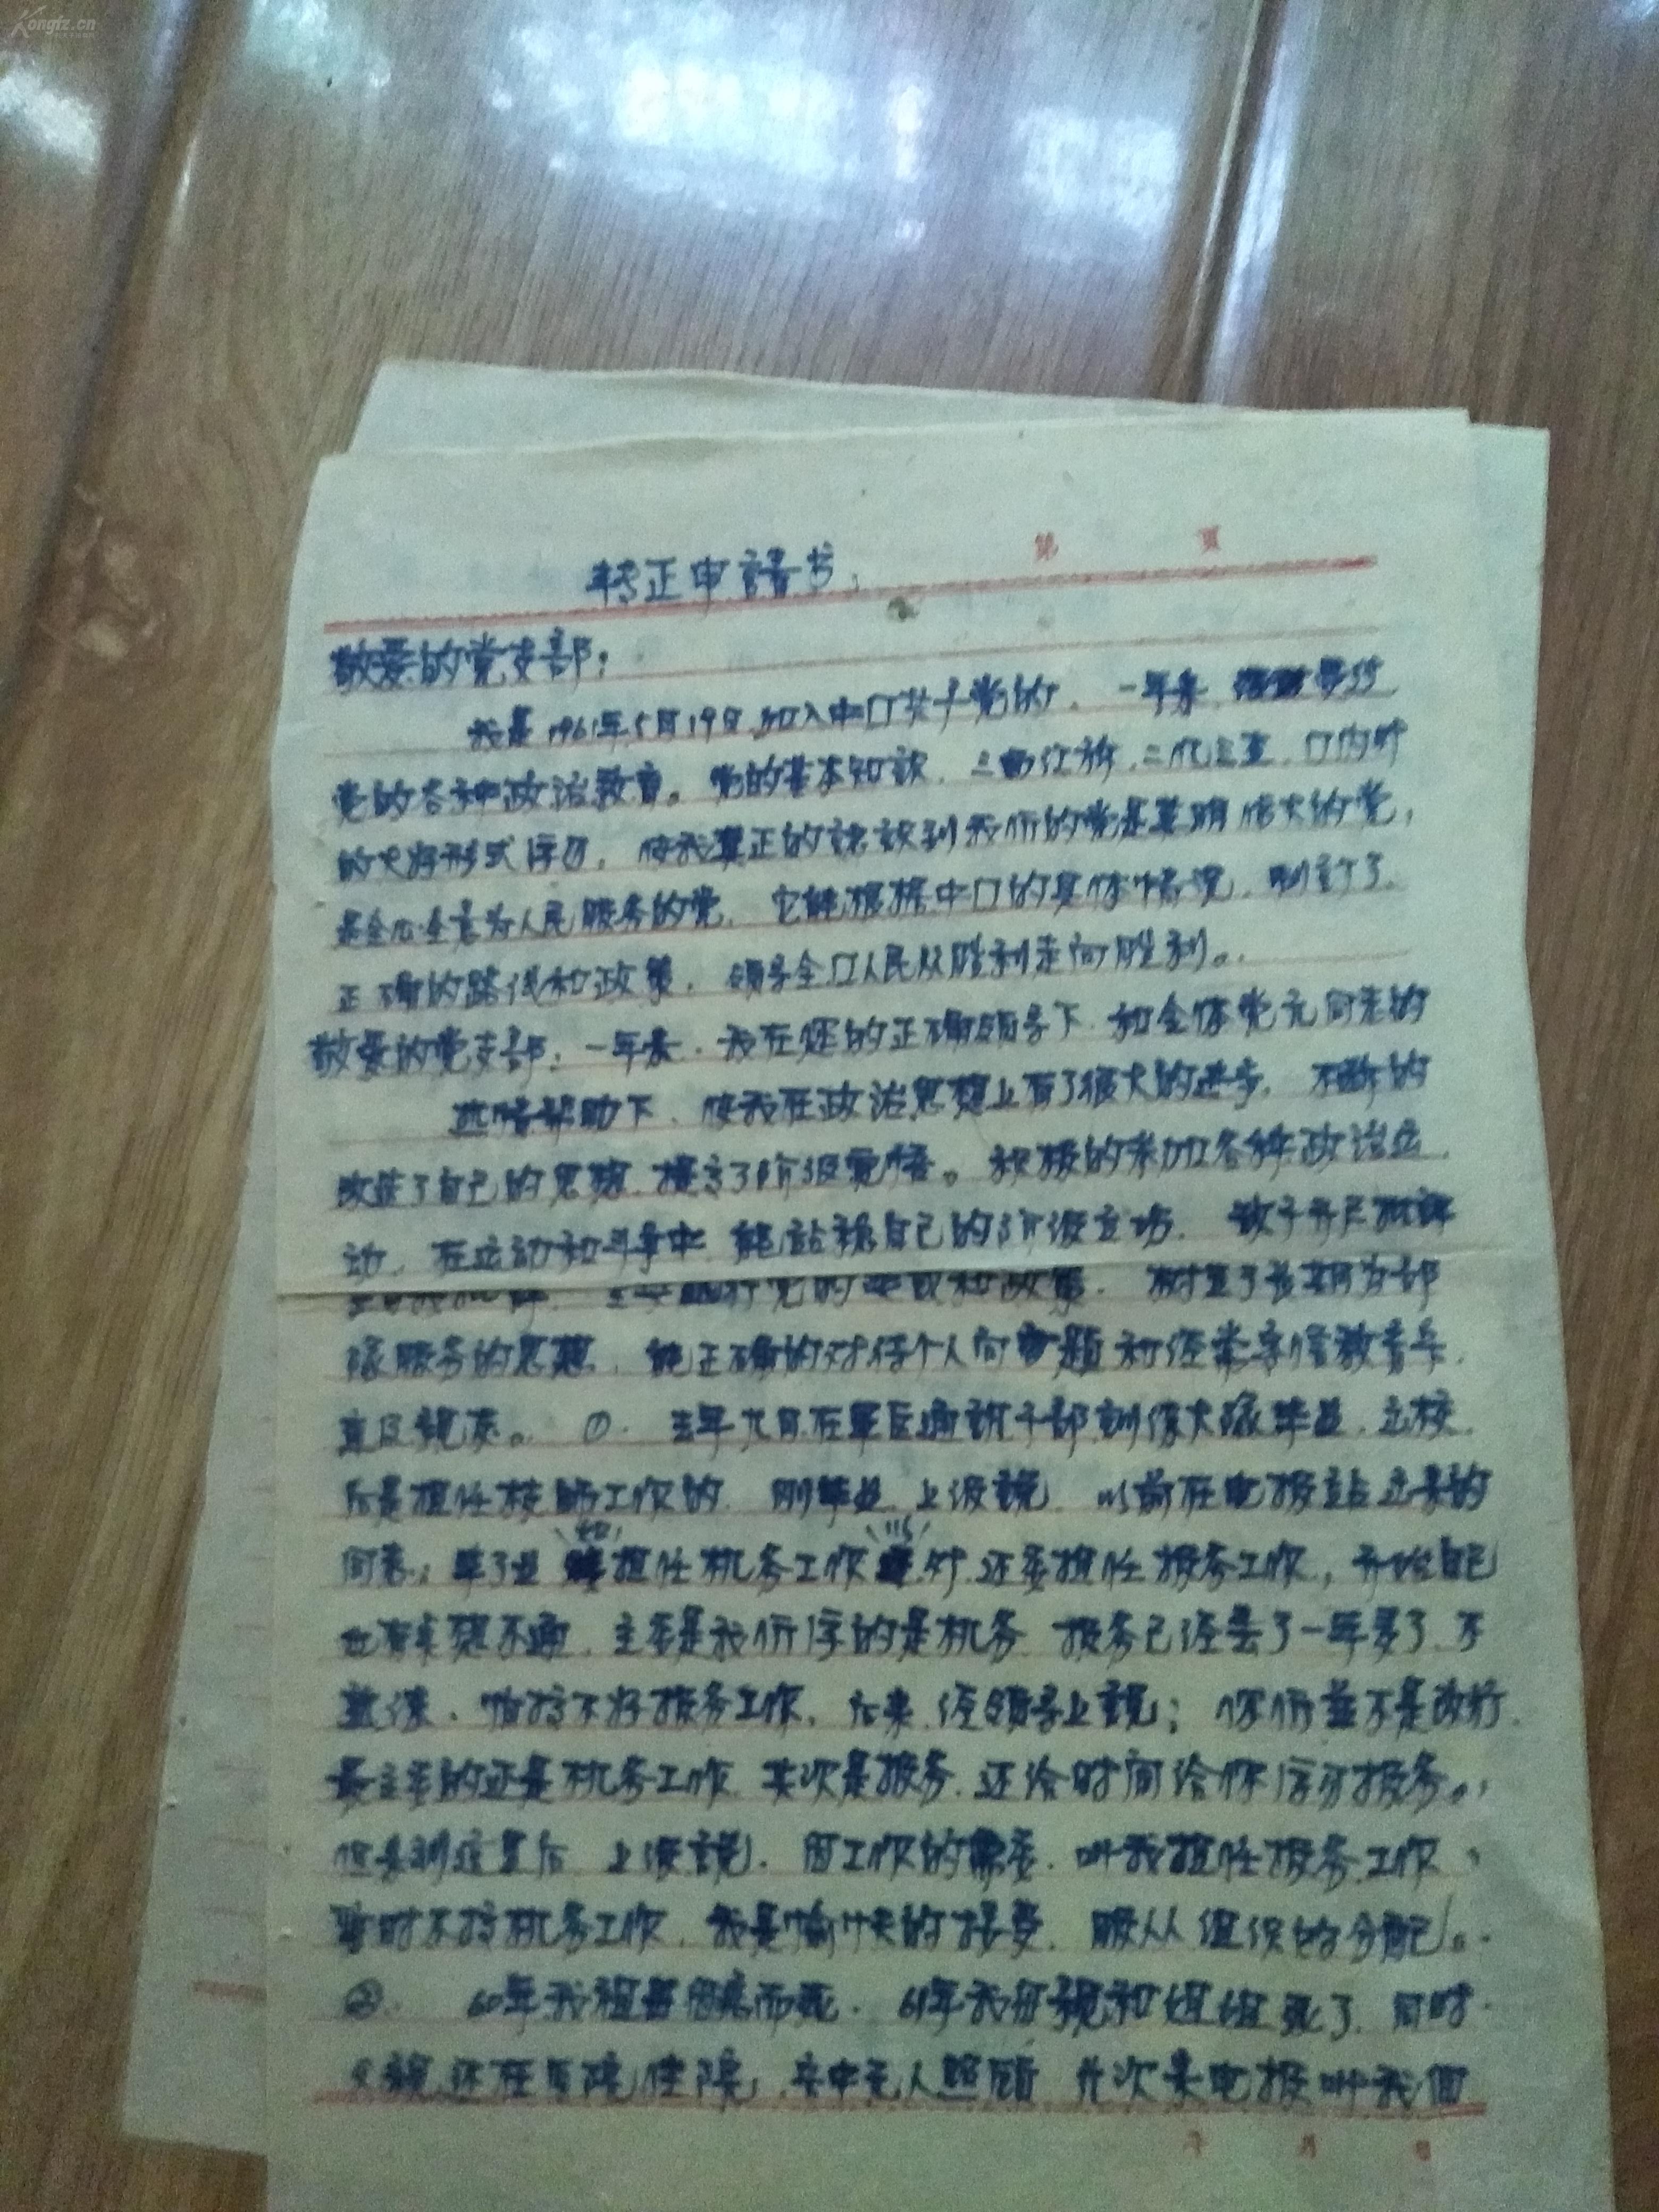 Kongfz.cn
第 页
转正申請书
敬爱的党支部：
我是1961年5月19日加入中囗共产党的，一年来，学习
党的各种政治教育。党的基本知識，三面红旗，三代三查，囗内外
的大好形式学习，使我真正的認識到我们的党是英明伟大的党，
是全心全意为人民服务的党，它能根据中囗的具体情况，制訂了
正确的路线和政策，领导全囗人民从胜利走向胜利。
敬爱的党支部：一年来，我在您的正确领导下，和全体党元同志的
热情帮助下，使我在政治思想上有了很大的进步，不断的
改造了自己的思想，提高了阶级觉悟。积极的参加各种政治运
动，在运动和斗争中，能站稳自己的阶级立场，敢于开展批評
党的政策，树立了长期为部
队服务的思想，能正确的对待个人问题和经常写信教育
直区親友。①. 去年九月在軍区通訊干部訓练大队毕业，
后是担任工作的，刚毕业，上级說，以前在电报站出来的
同志，毕了业担任机务工作外，还要担任报务工作，开始自己
也有些想不通，主要是我们学的是机务，报务已经丢了一年多了，不
熟练，怕搞不好报务工作，后来，经领导上說：你们並不是改行
最主要的还是机务工作，其次是报务，还给时间给你学习报务。
但是到这里后，上级說，因工作的需要，叫我担任报务工作，
暂时不搞机务工作，我是愉快的接受，服从组织的分配。
②. 60年我祖母因病而死，61年我母親和姐姐死了，同时
父親还在医院住院，家中无人照顾，几次来电报叫我回
年 月 日